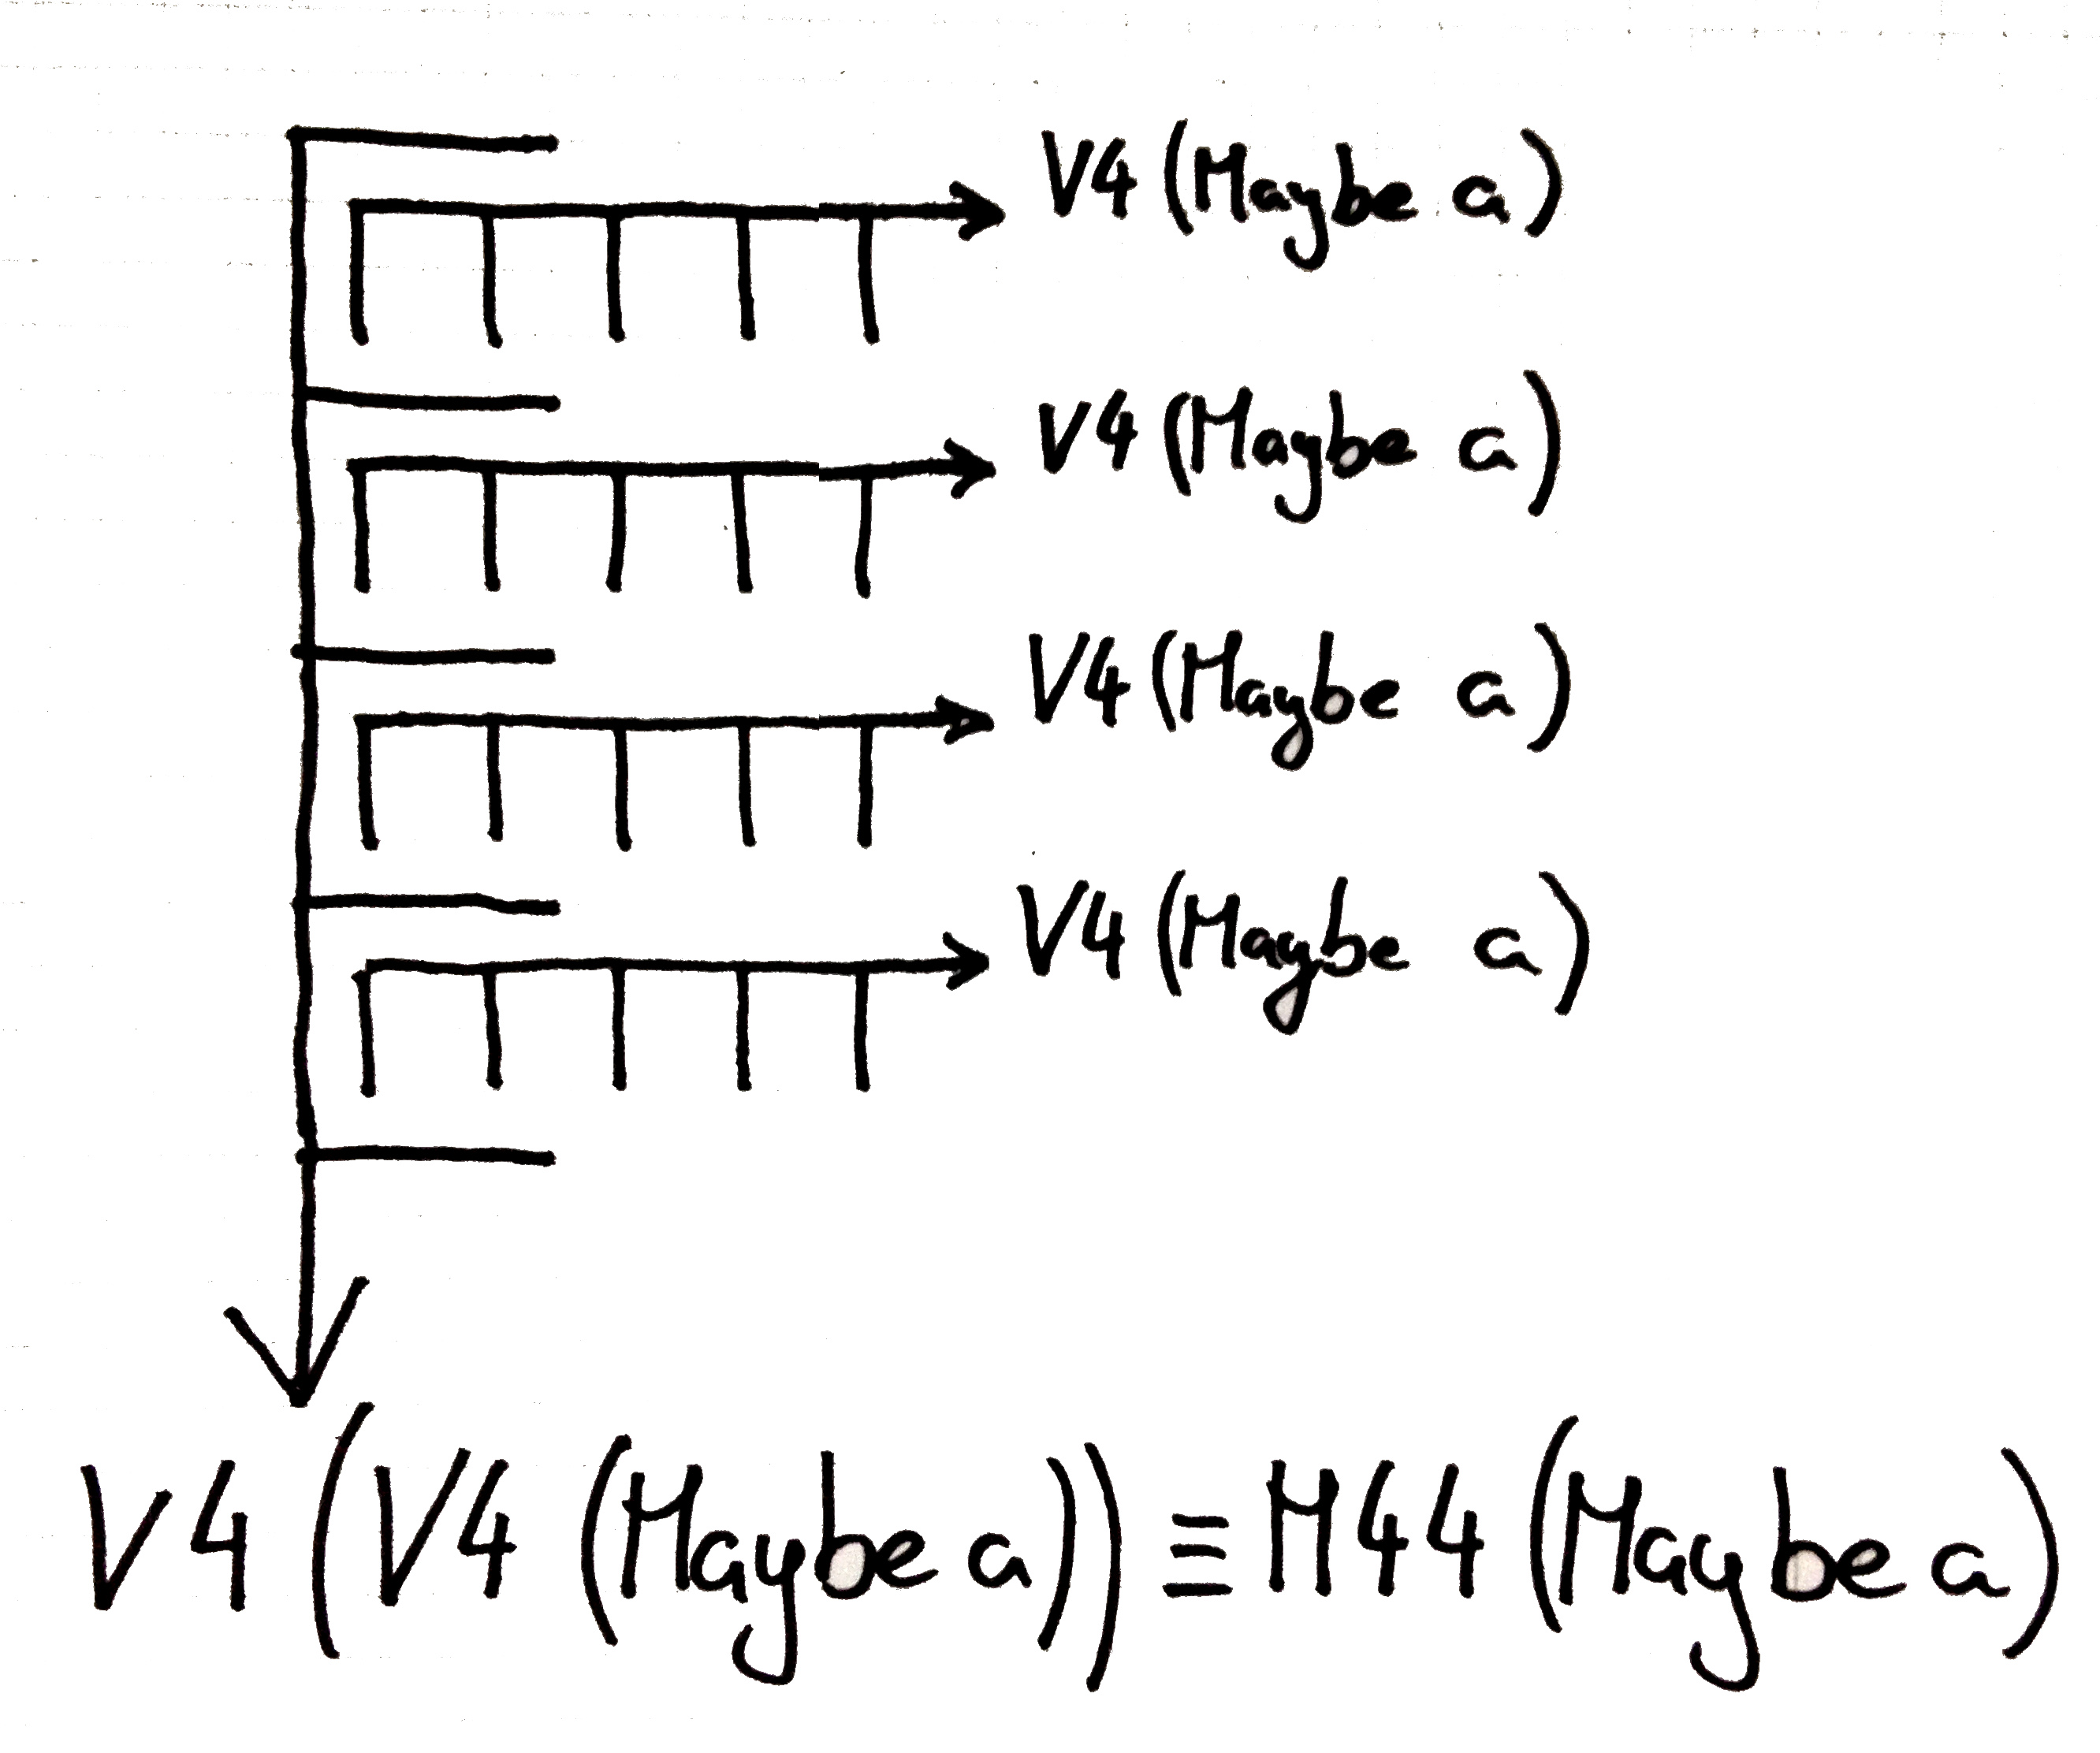 V4 (Maybe a)
V4 (Maybe a)
V4 (Maybe a)
V4 (Maybe a)
V4 (V4 (Maybe a)) ≡ M44 (Maybe a)